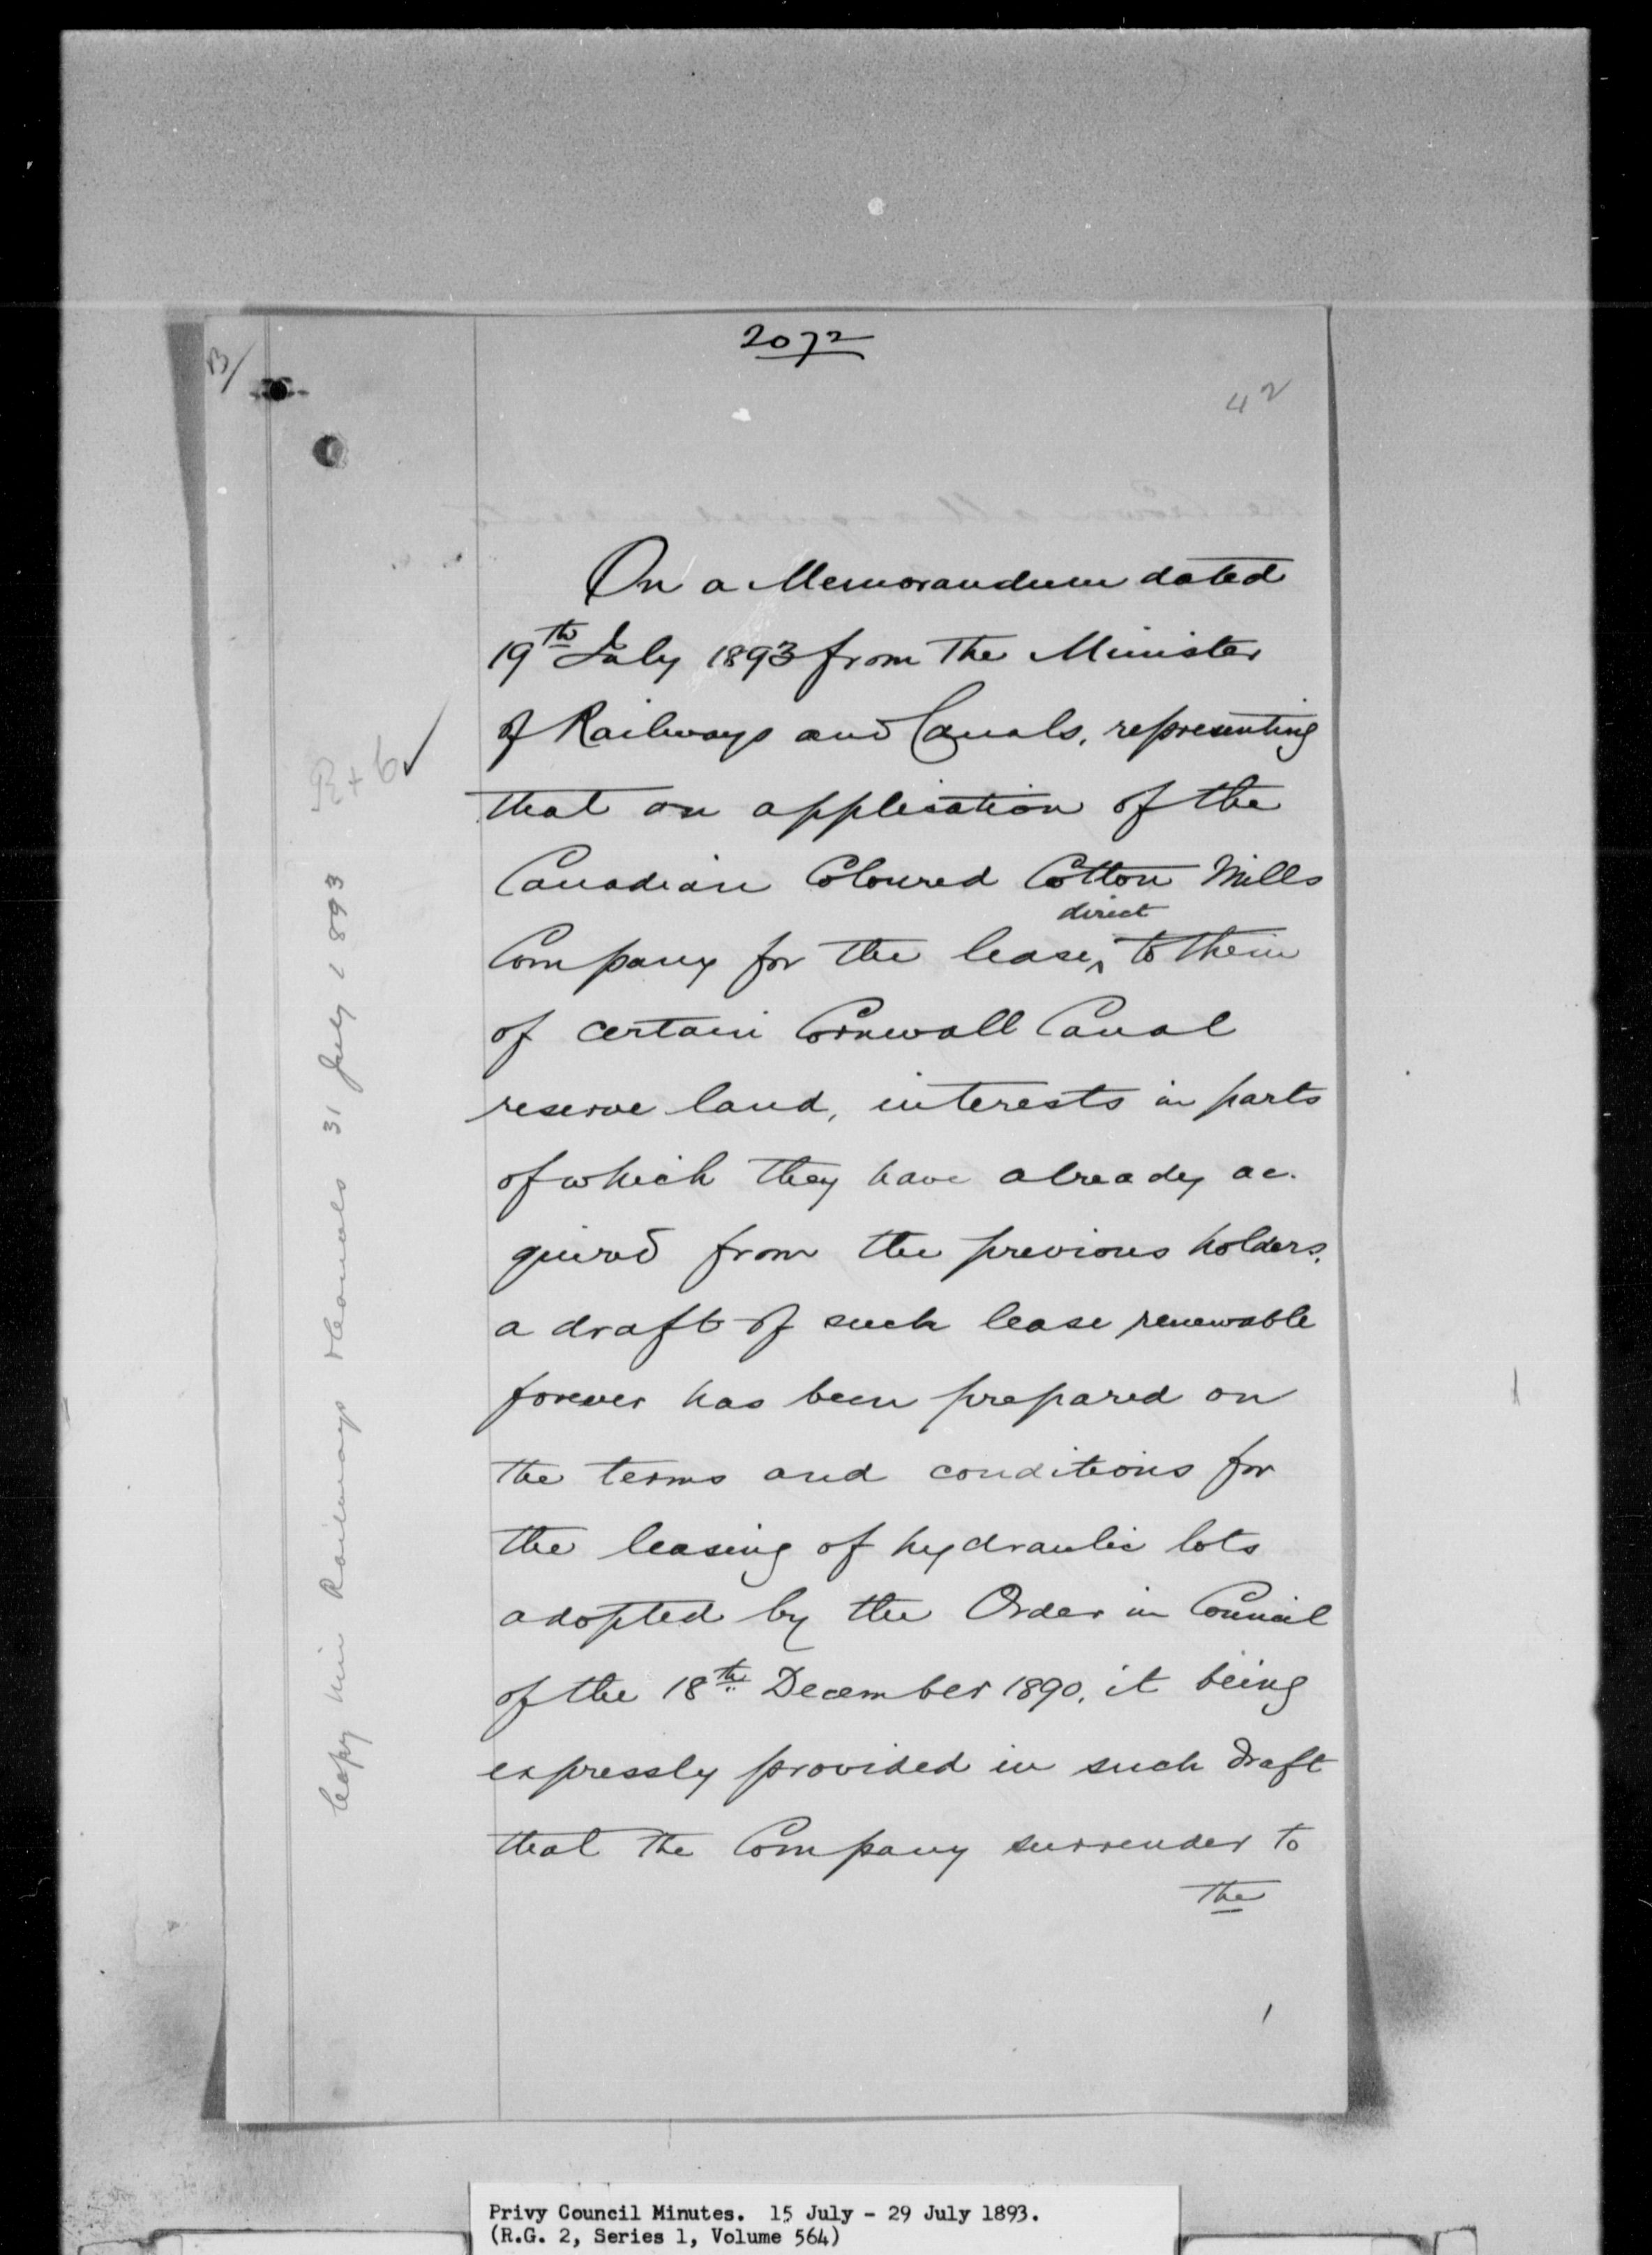 2072
B/
42
On a Memorandum dated
19th July 1893 from the Minister
of Railways and Canals, representing
that on application of the
Canadian Coloured Cotton Mills
direct
Company for the lease, ^ to them
of certain Cornwall Canal
reserve land, interests in parts
of which they have already ac.
quired from the previous holders,
a draft of such lease renewable
forever has been prepared on
the terms and conditions for
the leasing of hydraulic lots
adopted by the Order in Council
of the 18th December 1890, it being
expressly provided in such draft
that the Company surrender to
the
R + C ✓
Copy Min Railways & Canals 31 July 1893
Privy Council Minutes. 15 July - 29 July 1893.
(R.G. 2, Series 1, Volume 564)